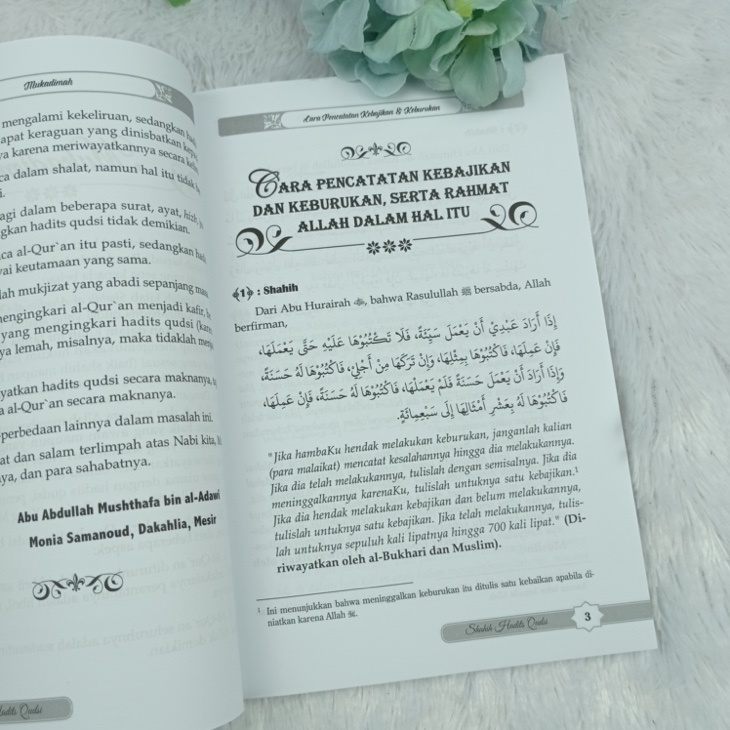 Mukadimah
mengalami kekeliruan, sedangkan
apat keraguan yang dinisbatkan
a karena meriwayatkannya secara
ca dalam shalat, namun hal itu tidak
i.
agi dalam beberapa surat, ayat,
gkan hadits qudsi tidak demikian.
ca al-Qur`an itu pasti, sedangkan
ai keutamaan yang sama.
lah mukjizat yang abadi sepanjang
mengingkari al-Qur`an menjadi kafir,
yang mengingkari hadits qudsi
ya lemah, misalnya, maka tidaklah
yatkan hadits qudsi secara maknanya,
a al-Qur`an secara maknanya.
perbedaan lainnya dalam masalah ini.
at dan salam terlimpah atas Nabi kita,
ya, dan para sahabatnya.
Abu Abdullah Mushthafa bin al-Adawi
Monia Samanoud, Dakahlia, Mesir
Hadits Qudsi
Cara Pencatatan Kebajikan & Keburukan
CARA PENCATATAN KEBAJIKAN
DAN KEBURUKAN, SERTA RAHMAT
ALLAH DALAM HAL ITU
﴾1﴿ : Shahih
Dari Abu Hurairah ﷺ, bahwa Rasulullah ﷺ bersabda, Allah
berfirman,
إِذَا أَرَادَ عَبْدِيْ أَنْ يَعْمَلَ سَيِّئَةً، فَلَا تَكْتُبُوْهَا عَلَيْهِ حَتَّى يَعْمَلَهَا،
فَإِنْ عَمِلَهَا، فَاكْتُبُوْهَا بِمِثْلِهَا، وَإِنْ تَرَكَهَا مِنْ أَجْلِيْ، فَاكْتُبُوْهَا لَهُ حَسَنَةً،
وَإِذَا أَرَادَ أَنْ يَعْمَلَ حَسَنَةً فَلَمْ يَعْمَلْهَا، فَاكْتُبُوْهَا لَهُ حَسَنَةً، فَإِنْ عَمِلَهَا،
فَاكْتُبُوْهَا لَهُ بِعَشْرِ أَمْثَالِهَا إِلَى سَبْعِمِائَةٍ.
"Jika hambaKu hendak melakukan keburukan, janganlah kalian
(para malaikat) mencatat kesalahannya hingga dia melakukannya.
Jika dia telah melakukannya, tulislah dengan semisalnya. Jika dia
meninggalkannya karenaKu, tulislah untuknya satu kebajikan.¹
Jika dia hendak melakukan kebajikan dan belum melakukannya,
tulislah untuknya satu kebajikan. Jika telah melakukannya, tulis-
lah untuknya sepuluh kali lipatnya hingga 700 kali lipat." (Di-
riwayatkan oleh al-Bukhari dan Muslim).
¹ Ini menunjukkan bahwa meninggalkan keburukan itu ditulis satu kebaikan apabila di-
niatkan karena Allah ﷻ.
Shahih Hadits Qudsi
3